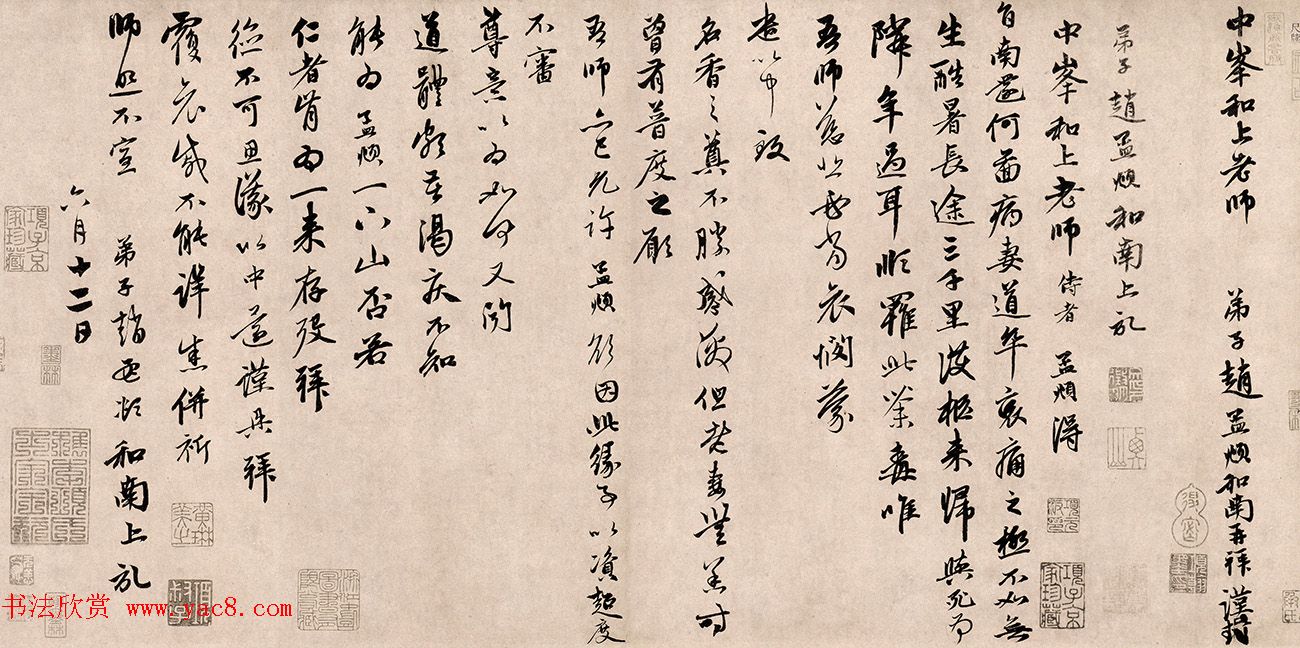 中峯和上老师　弟子趙孟頫和南再拜謹封
弟子趙孟頫和南上記
中峯和上老师侍者孟頫得
旨南還何啚病妻道卒哀痛之極不如無
生酷暑長途三千里護柩来歸與死為
隣年過耳順罹此荼毒唯
吾師慈悲必當哀憫蒙
遣以中致
名香之奠不勝感激但老妻無恙時
曾有普度之願
吾師亦已允許孟頫欲因此緣子以資超度
不審
尊意以為如何又聞
道體頗苦渴疾不知
能為孟頫一下山否若
仁者肯為一来存歿拜
德不可思議以中還謹再拜
覆哀戚不能詳盡併祈
師照不宣　弟子趙孟頫和南上記
六月十二日
項子京家珍藏
項子京家珍藏
书法欣赏 www.yac8.com